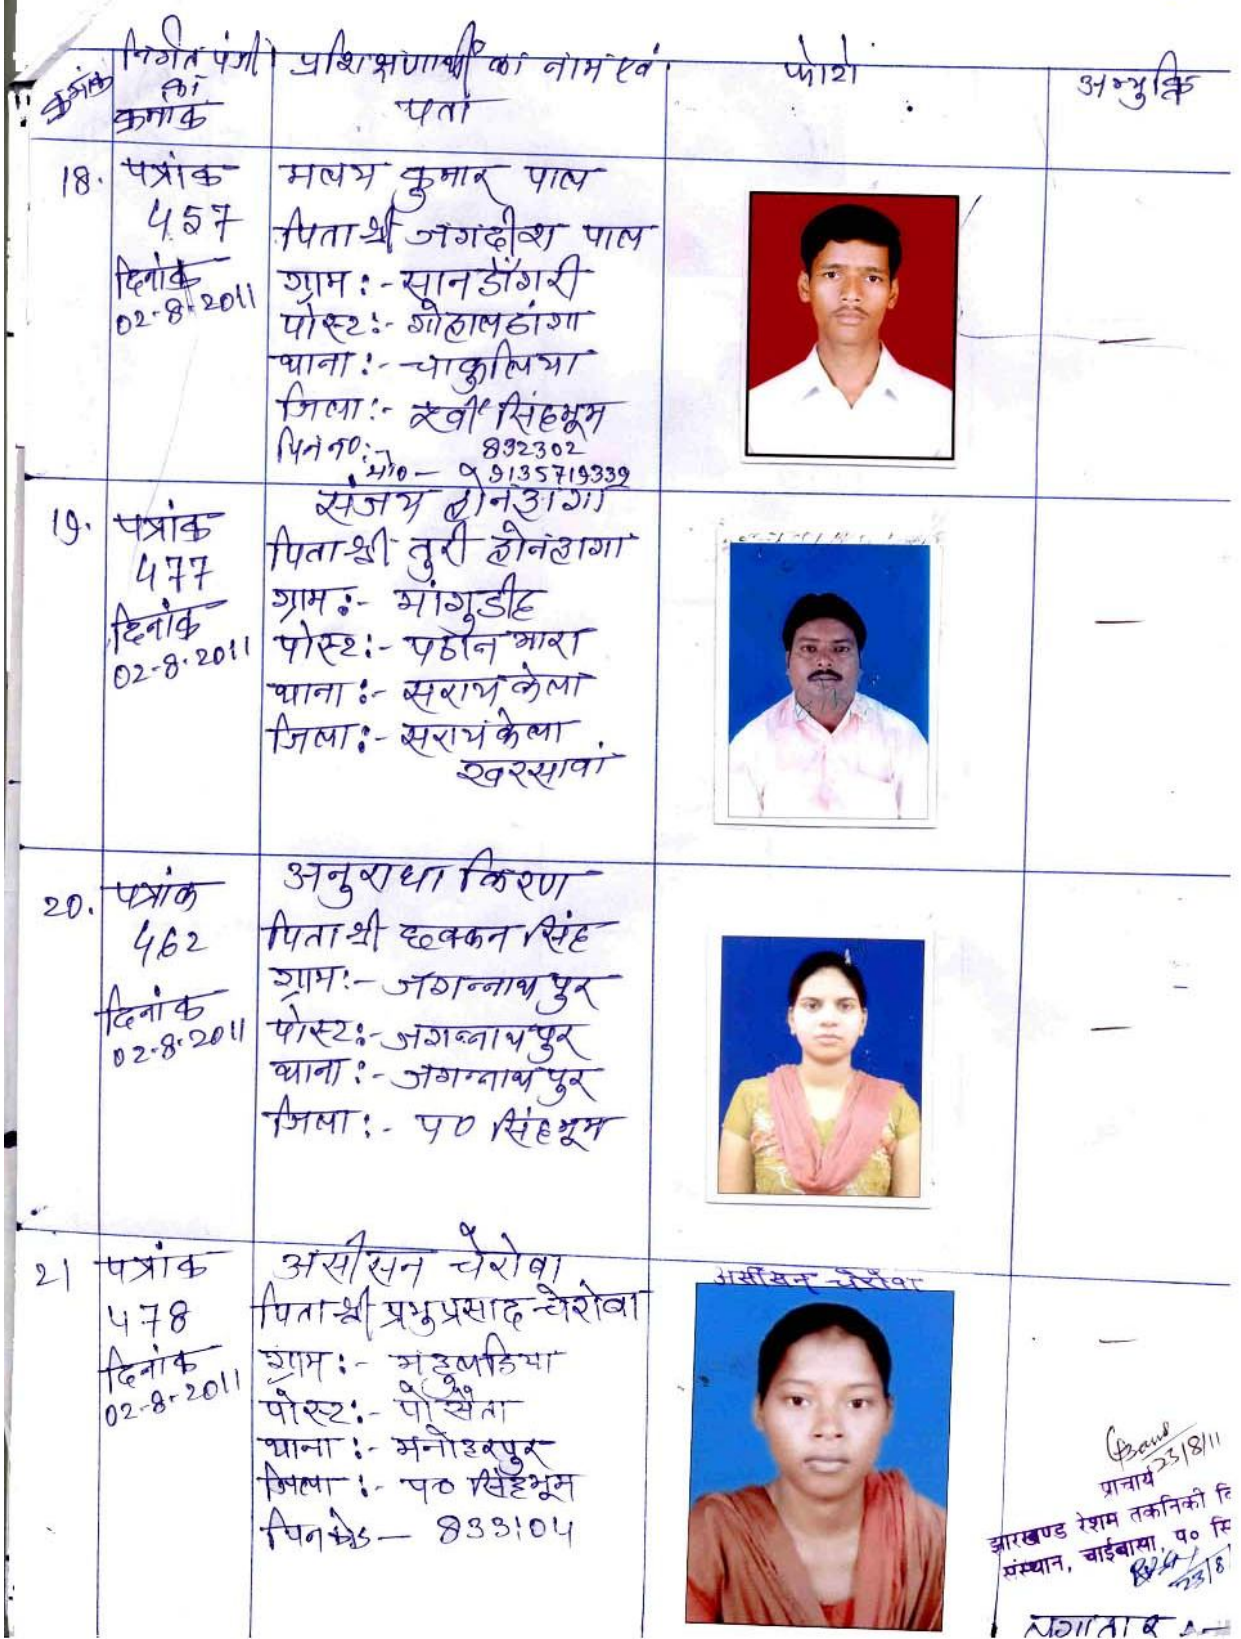 क्रमांक
निर्गत पंजी
का
क्रमांक
प्रशिक्षणार्थी का नाम एवं
पता
फोटो
अभ्युक्ति
18.
पत्रांक
457
दिनांक
02-8-2011
मलय कुमार पाल
पिता श्री जगदीश पाल
ग्राम :- सानडोंगरी
पोस्ट :- गोहालडांगा
थाना :- चाकुलिया
जिला :- पूर्वी सिंहभूम
पिन न0 :- 832302
मो0 - 9135719339
19.
पत्रांक
477
दिनांक
02-8-2011
संजय
पिता श्री तुरी
ग्राम :- मांगुडीह
पोस्ट :-
थाना :- सरायकेला
जिला :- सरायकेला
खरसावां
20.
पत्रांक
462
दिनांक
02-8-2011
अनुराधा किरण
पिता श्री छक्कन सिंह
ग्राम :- जगन्नाथपुर
पोस्ट :- जगन्नाथपुर
थाना :- जगन्नाथपुर
जिला :- प0 सिंहभूम
21
पत्रांक
478
दिनांक
02-8-2011
असीसन चेरोवा
पिता श्री प्रभु प्रसाद चेरोवा
ग्राम :-
पोस्ट :- पोसैता
थाना :- मनोहरपुर
जिला :- प0 सिंहभूम
पिनकोड - 833104
असीसन चेरोवा
23/8/11
प्राचार्य
झारखण्ड रेशम तकनिकी
संस्थान, चाईबासा, प० सि
23/8
लगातार